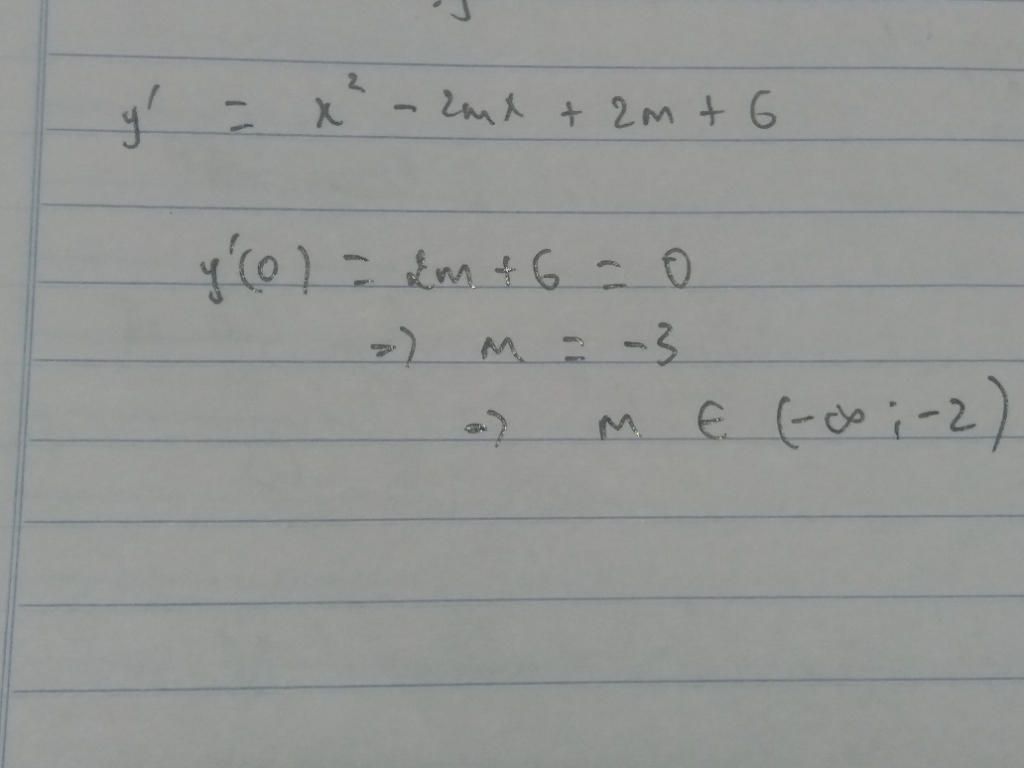 y' = x² - 2mx + 2m + 6
y'(0) = 2m + 6 = 0
=> m = -3
=> m ∈ (-∞ ; -2)